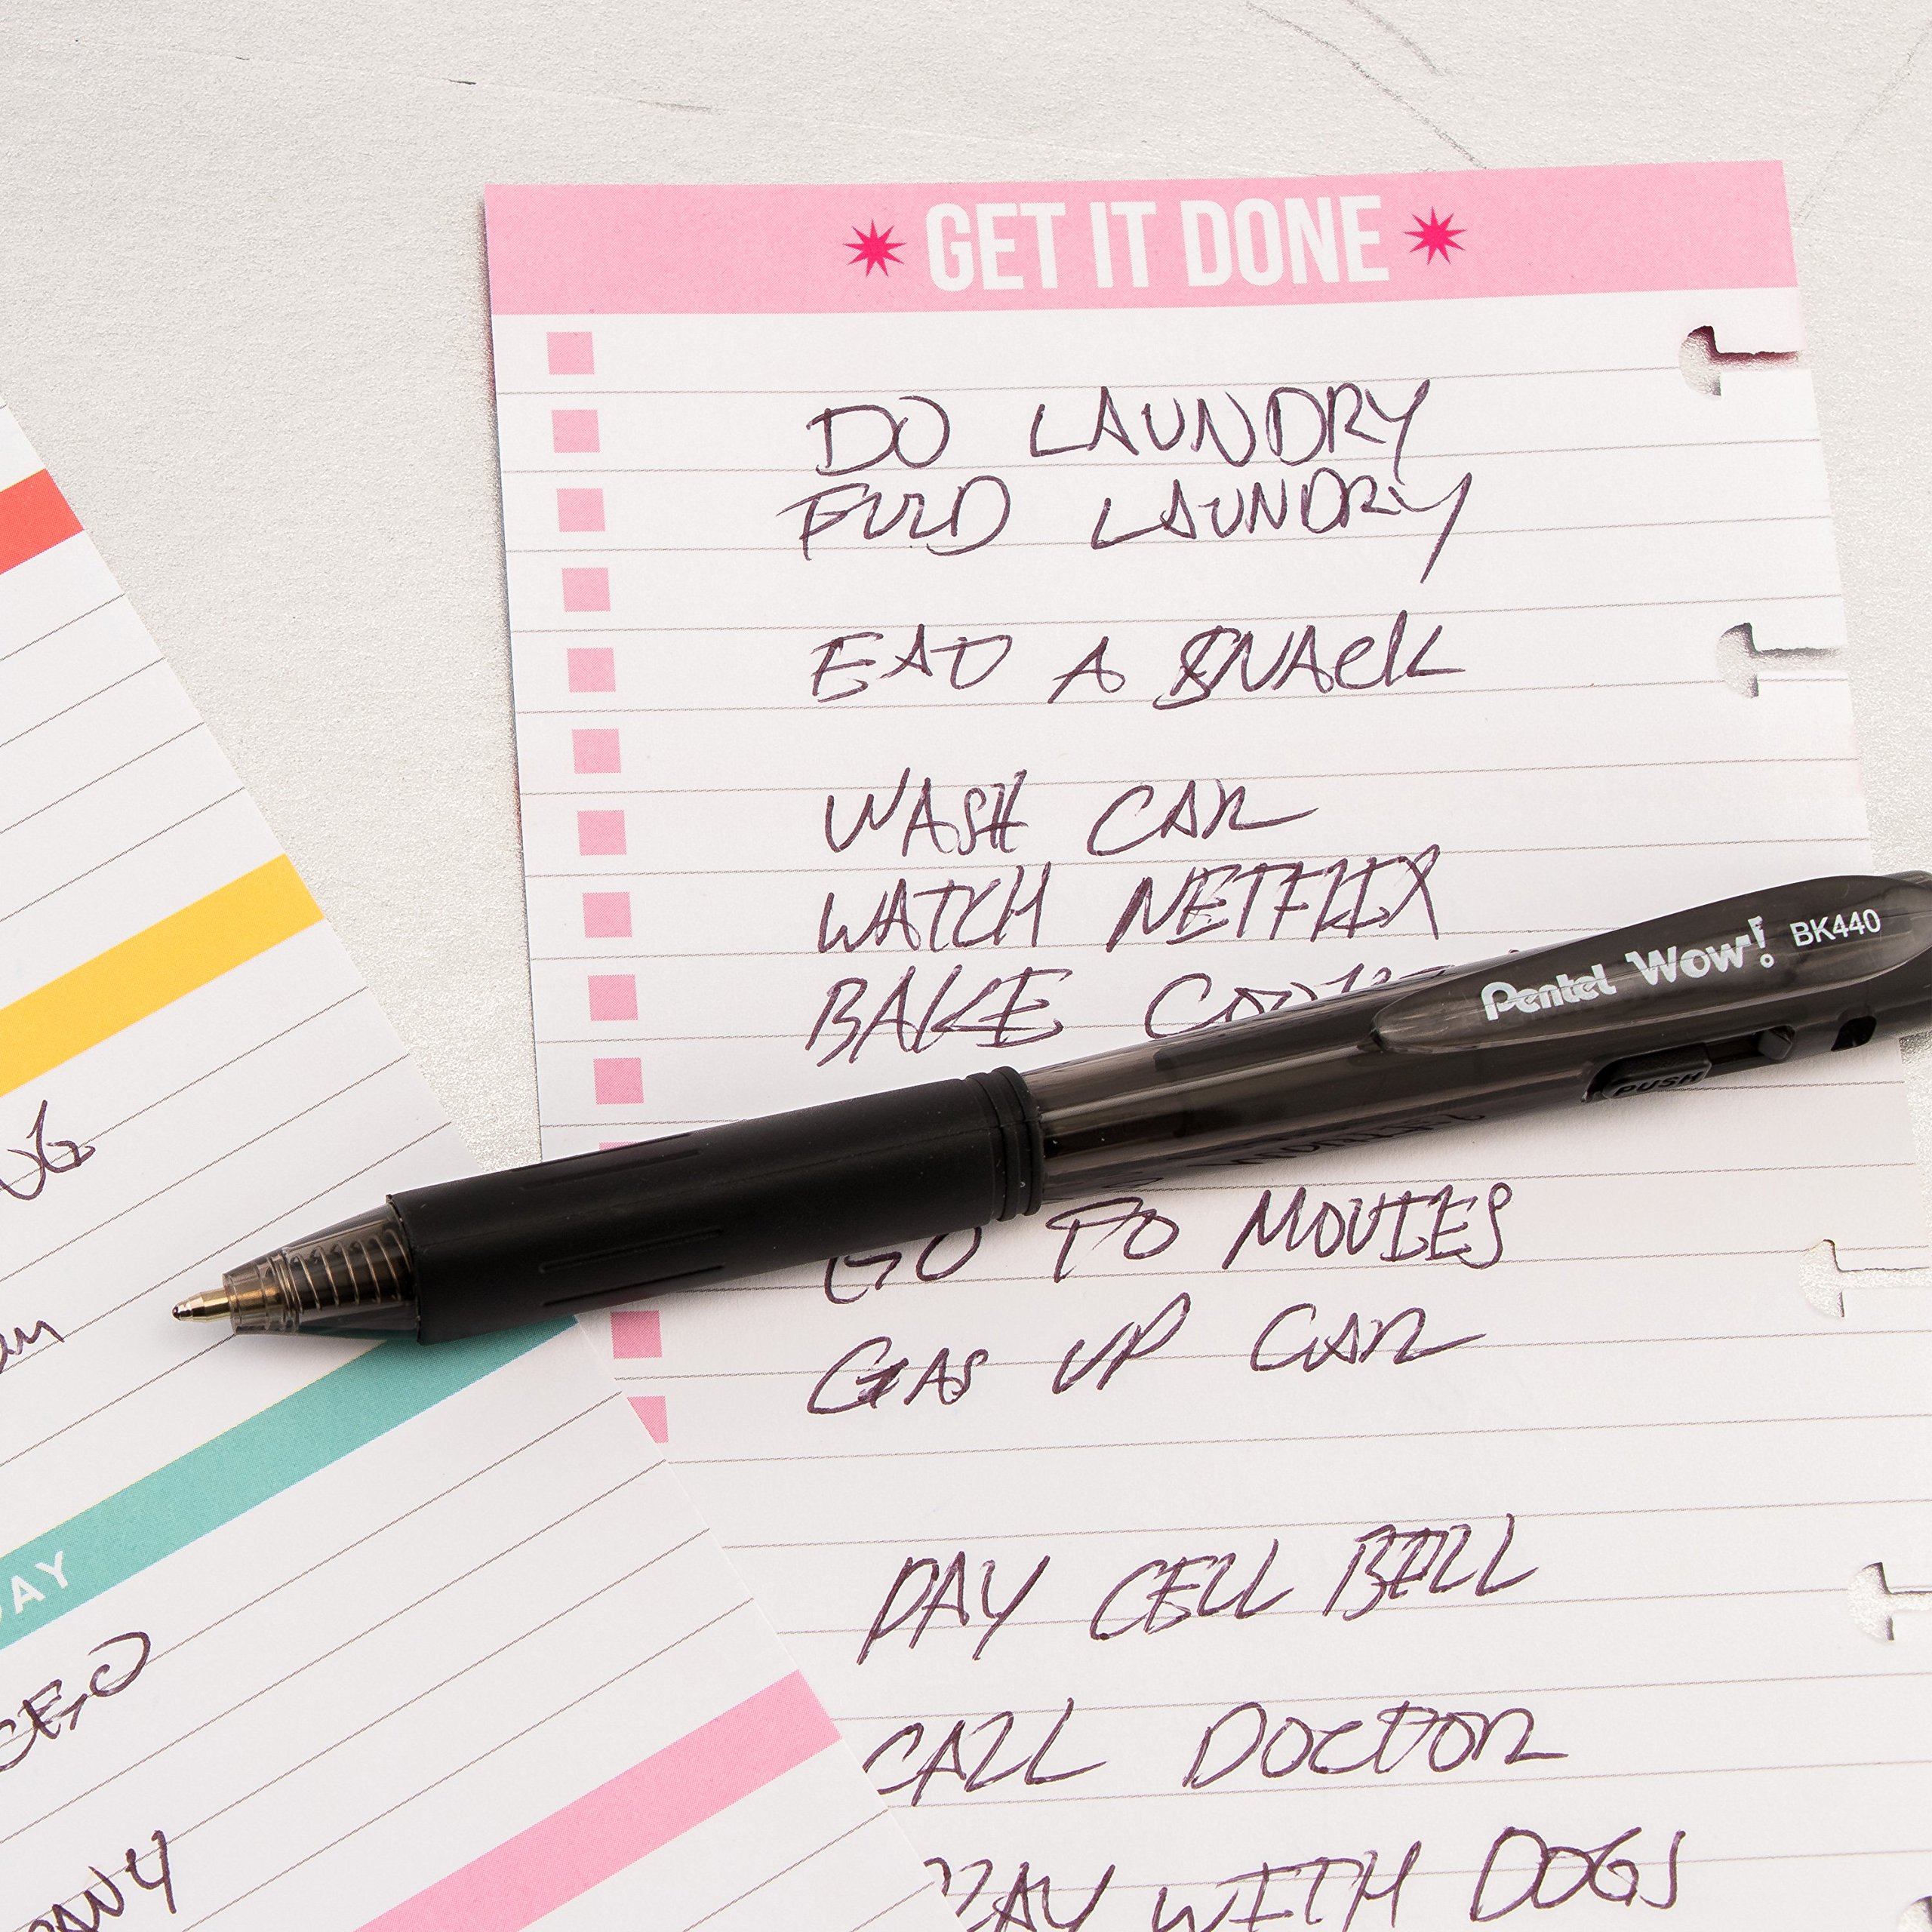 GET IT DONE
DO LAUNDRY
FOLD LAUNDRY
EAT A SNACK
WASH CAR
WATCH NETFLIX
BAKE
Pentel Wow! BK440
PUSH
GO TO MOVIES
GAS UP CAR
PAY CELL BILL
CALL DOCTOR
WITH DOGS